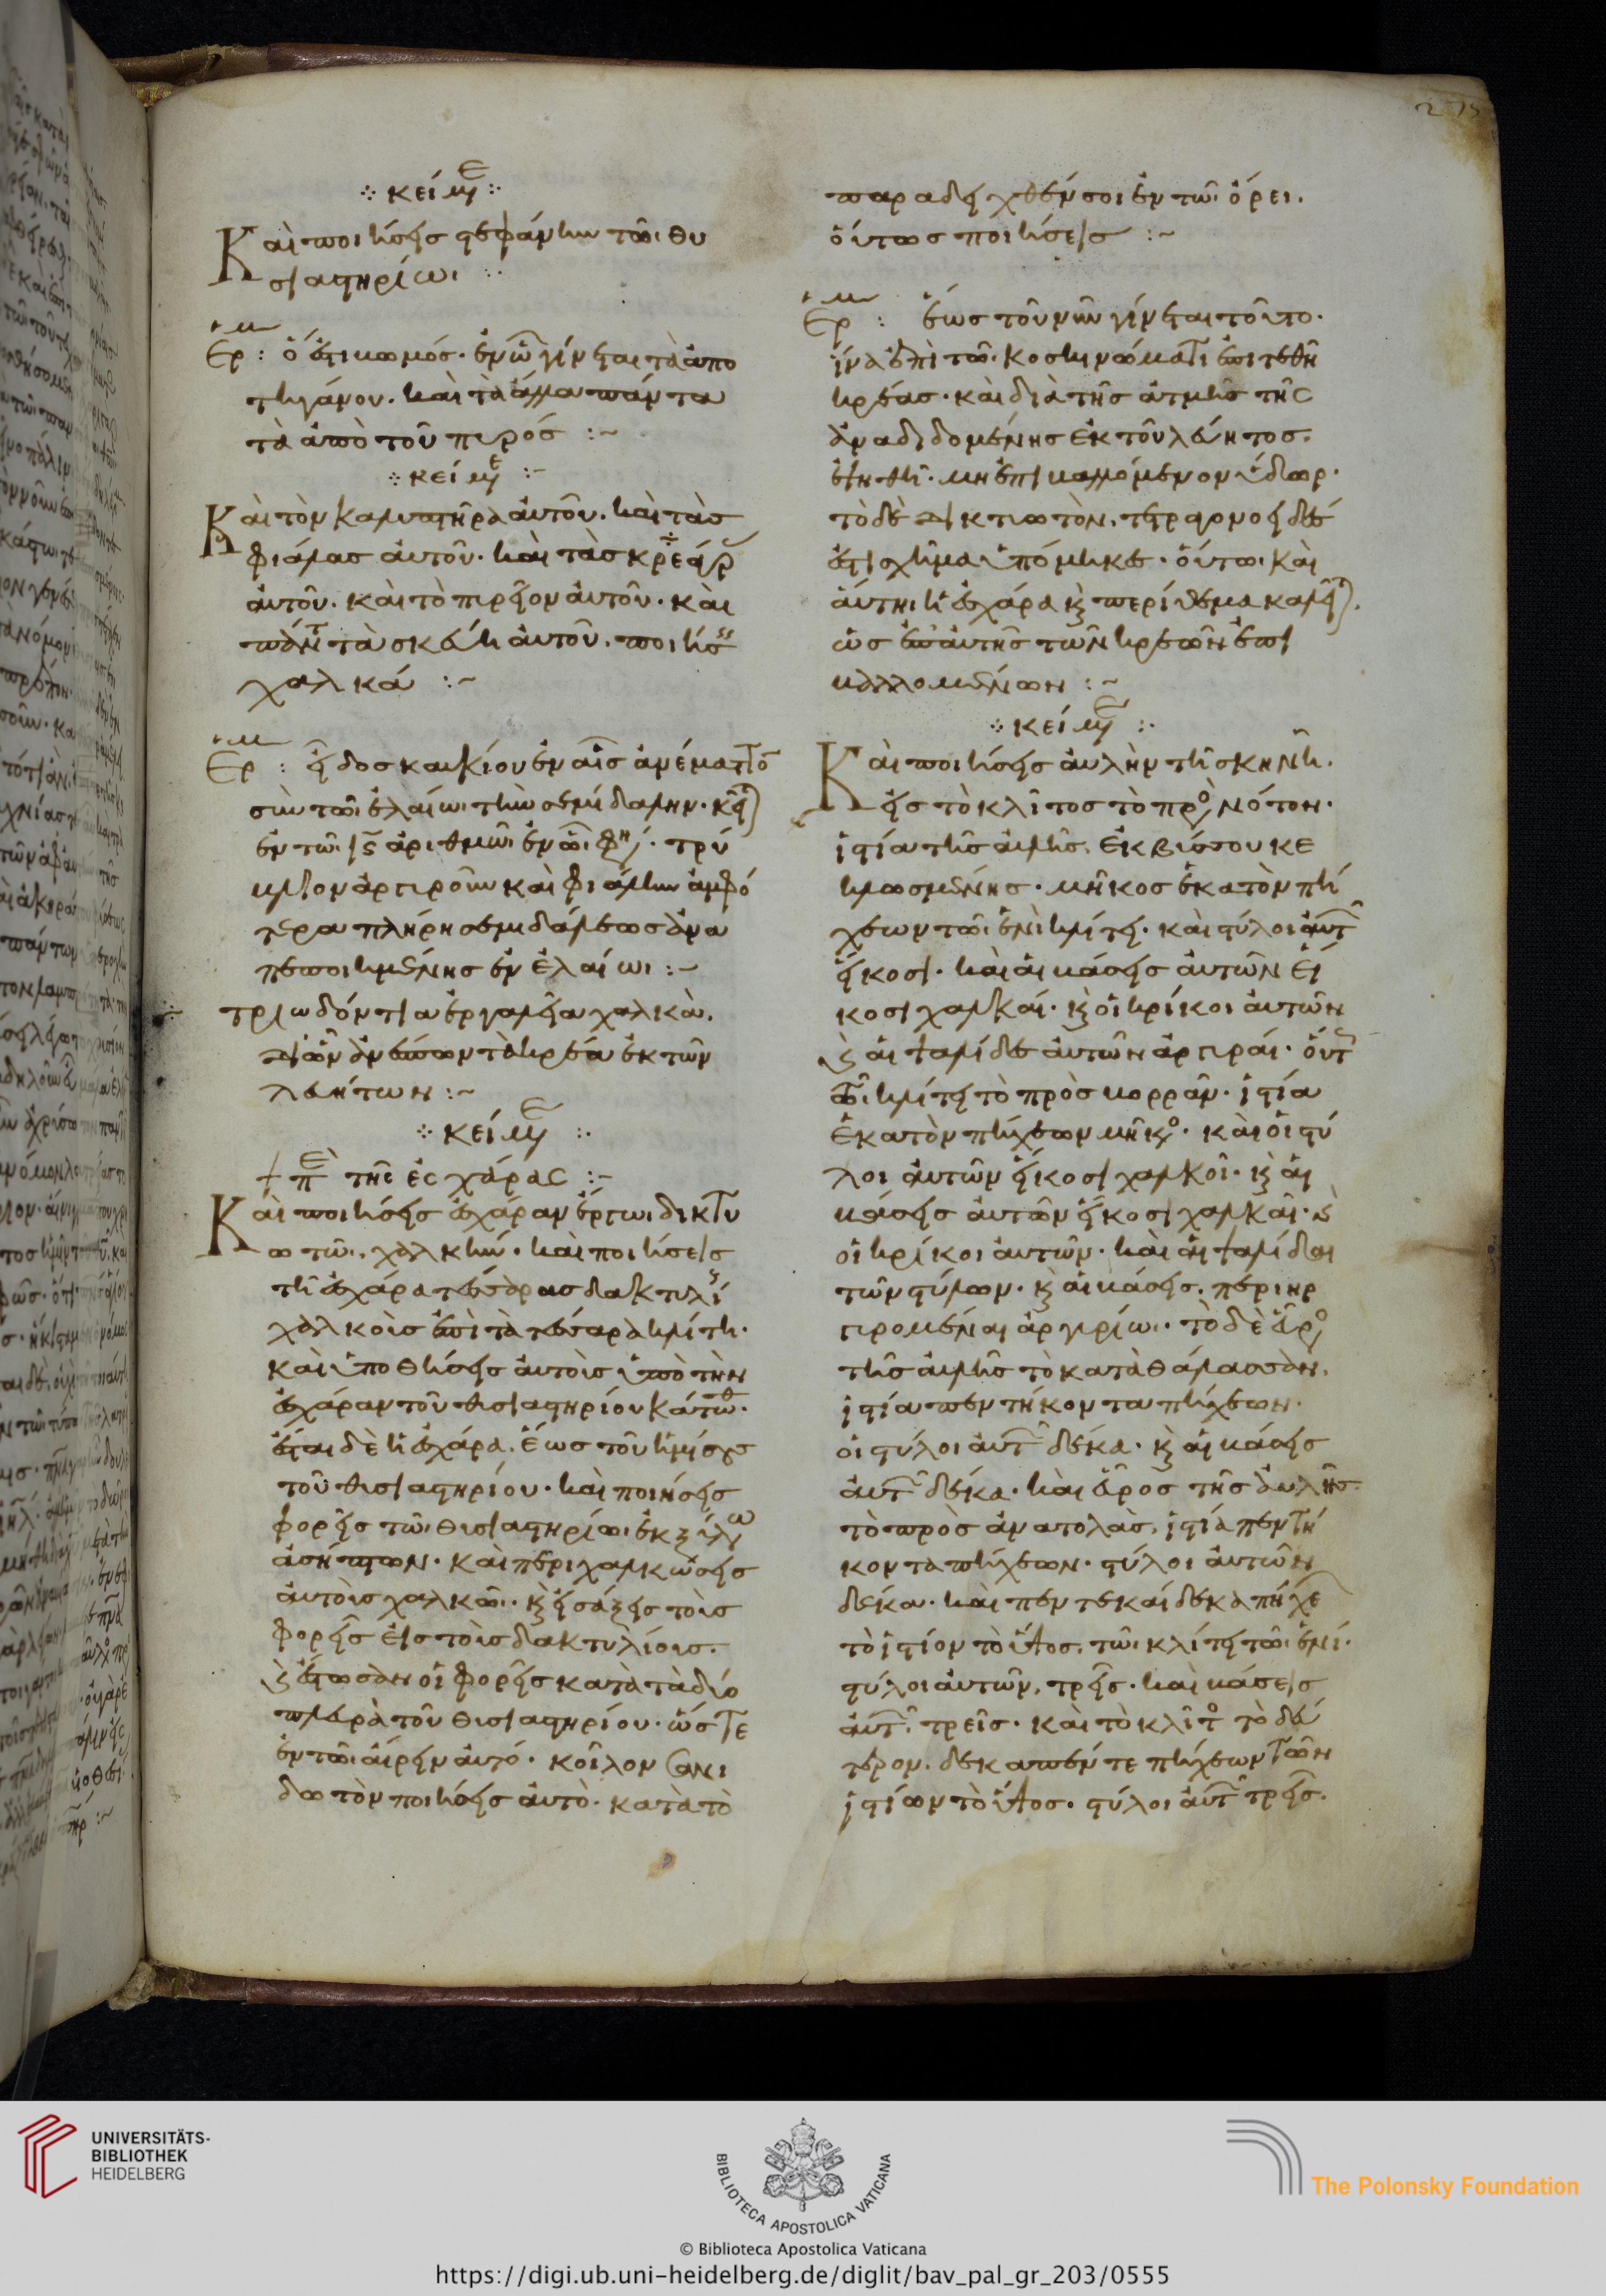 κείμε
Καὶ ποιήσεις στεφάνην τῶι θυ
σιαστηρίωι
Ερμ : ὅ ἐστι κωμός. ἐν ὧ γίνεται τὰ ἀπο
τηγάνου. καὶ τὰ ἄλλα πάντα
τὰ ἀπὸ τοῦ πυρός :~
κείμε :~
Καὶ τὸν καλυπτῆρα αὐτοῦ. καὶ τὰς
φιάλας αὐτοῦ. καὶ τὰς κρεάγρ
αὐτοῦ. καὶ τὸ πυρεῖον αὐτοῦ. καὶ
πάντ τὰ σκεύη αὐτοῦ. ποιήσ
χαλκά :~
Ερμ : εἶδος καυκίου ἐν αἷς ἀνέματτο
σὺν τῶι ἐλαίωι τὴν σεμίδαλιν. κεῖ
ἐν τῶι ις ἀριθμῶι ἐν ὧι φη. τρύ
βλιον ἀργυροῦν καὶ φιάλην ἀμφό
τερα πλήρη σεμιδάλεως ἀνα
πεποιημένης ἐν ἐλαίωι :~
τριωδόντια ἐργαλεῖα χαλκὰ.
δι ὧν ἀνέσπων τὰ κρέα ἐκ τῶν
λεβήτων :~
κείμε
+ πε τῆς ἐσχάρας :~
Καὶ ποιήσεις ἐσχάραν ἔργωι δικτυ
ωτῶι, χαλκῆν. καὶ ποιήσεις
τῆ ἐσχάρα τέσσαρας δακτυλί
χαλκοῖς ἐπὶ τὰ τέσσαρα κλίτη.
καὶ ὑποθήσεις αὐτοῖς ὑπὸ τὴν
ἐσχάραν τοῦ θυσιαστηρίου κάτωθ.
ἔσται δὲ ἡ ἐσχάρα. ἕως τοῦ ἡμίσους
τοῦ θυσιαστηρίου. καὶ ποιήσεις
φορεῖς τῶι θυσιαστηρίωι ἐκ ξύλω
ἀσήπτων. καὶ περιχαλκώσεις
αὐτοὺς χαλκῶι. κ εἰσάξεις τοὺς
φορεῖς εἰς τοὺς δακτυλίους.
κ ἔστωσαν οἱ φορεῖς κατὰ τὰ δύο
πλευρὰ τοῦ θυσιαστηρίου. ὥστε
ἐν τῶι αἴρειν αὐτό. κοῖλον σανι
δωτὸν ποιήσεις αὐτὸ. κατὰ τὸ
παραδειχθέν σοι ἐν τῶι ὄρει.
οὕτως ποιήσεις :~
Ερμ : ἕως τοῦ νῦν γίνεται τοῦτο.
ἵνα ἐπὶ τῶι κοσκινώματι ἐπιτεθῆ
κρέας. καὶ διὰ τῆς ἀτμῆς τῆς
ἀναδιδομένης ἐκ τοῦ λέβητος.
ἑψηθῆ. μὴ ἐπικαλλόμενον ὕδωρ.
τὸ δὲ δικτυωτὸν. τετραρνοειδές
ἐστι σχῆμα ὑπόμηκες. οὕτω. καὶ
αὕτηι ἡ ἐσχάρα κ περίθεμα καλεῖ
ὡς ἐπ αὐτῆς τῶν κρεῶν ἐπι
καλλομένων :~
κείμε
Καὶ ποιήσεις αὐλὴν τῆ σκηνῆ.
εἰς τὸ κλῖτος τὸ προ νότον.
ἱστία τῆς αὐλῆς. ἐκ βύσσου κε
κλωσμένης. μῆκος ἑκατὸν πή
χεων τῶι ἑνὶ κλίτει. καὶ στύλοι αὐτ
εἴκοσι. καὶ αἱ βάσεις αὐτῶν εἴ
κοσι χαλκαῖ. κ οἱ κρίκοι αὐτῶν
κ αἱ ψαλίδες αὐτῶν ἀργυραῖ. οὕτ
τῶι κλίτει τὸ πρὸς βορρᾶν. ἱστία
ἑκατὸν πήχεων μῆκο. καὶ οἱ στύ
λοι αὐτῶν εἴκοσι χαλκοῖ. κ αἱ
βάσεις αὐτῶν εἴκοσι χαλκαῖ. κ
οἱ κρίκοι αὐτῶν. καὶ αἱ ψαλίδαι
τῶν στύλων. κ αἱ βάσεις. περιηρ
γυρομέναι ἀργυρίωι. τὸ δὲ εὖρο
τῆς αὐλῆς τὸ κατὰ θάλασσαν.
ἱστία πεντήκοντα πήχεων.
οἱ στύλοι αὐτ δέκα. κ αἱ βάσεις
αὐτ δέκα. καὶ εὖρος τῆς αὐλῆς
τὸ πρὸς ἀνατολὰς. ἱστία πεντή
κοντα πήχεων. στύλοι αὐτῶν
δέκα. καὶ πεντεκαίδεκα πήχε
τὸ ἱστίον τὸ ὕψος. τῶι κλίτει τῶι ἑνί.
στύλοι αὐτῶν, τρεῖς. καὶ βάσεις
αὐτ. τρεῖς. καὶ τὸ κλῖτο τὸ δεύ
τερον. δεκαπέντε πήχεων τῶν
ἱστίων τὸ ὕψος. στύλοι αὐτ τρεῖς.
UNIVERSITÄTS-
BIBLIOTHEK
HEIDELBERG
BIBLIOTECA APOSTOLICA VATICANA
The Polonsky Foundation
© Biblioteca Apostolica Vaticana
https://digi.ub.uni-heidelberg.de/diglit/bav_pal_gr_203/0555